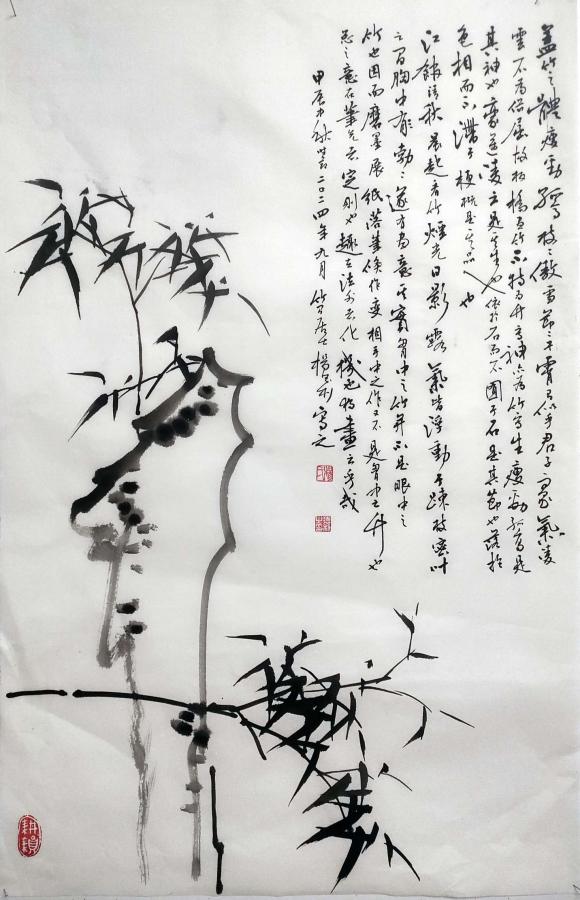 盖竹之體瘦勁孤高枝〻傲雪節〻干霄有似乎君子豪氣凌
雲不為俗屈故板橋画竹不特為竹寫神亦為竹寫生瘦勁孤高是
其神也豪邁凌云是其生也依於石而不囿于石是其節也落於
色相而不滯于梗概是其品也
江館清秋晨起看竹煙光日影露氣皆浮動于疎枝密叶
之間胸中勃〻遂有畫意其實胸中之竹并不是眼中之
竹也因而磨墨展紙落筆倏作變相手中之竹又不是胸中之竹也
总之意在筆先者定則也趣在法外者化機也獨畫云乎哉
甲辰中秋二〇二四年九月竹居士楊寫之
耕讀